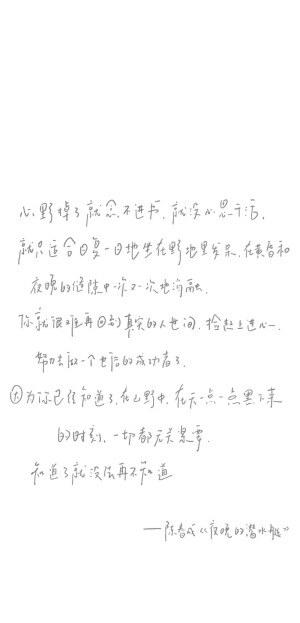 心野掉了就念不进书，就没心思干活，
就只适合日复一日地坐在野地里发呆，在黄昏和
夜晚的缝隙中一次又一次地消融。
你就很难再回到真实的人世间，捡起上进心，
努力去做一个世俗的成功者了。
因为你已经知道了，在山野中，在天一点一点黑下来
的时刻，一切都无关紧要。
知道了就没法再不知道
——陈春成《夜晚的潜水艇》